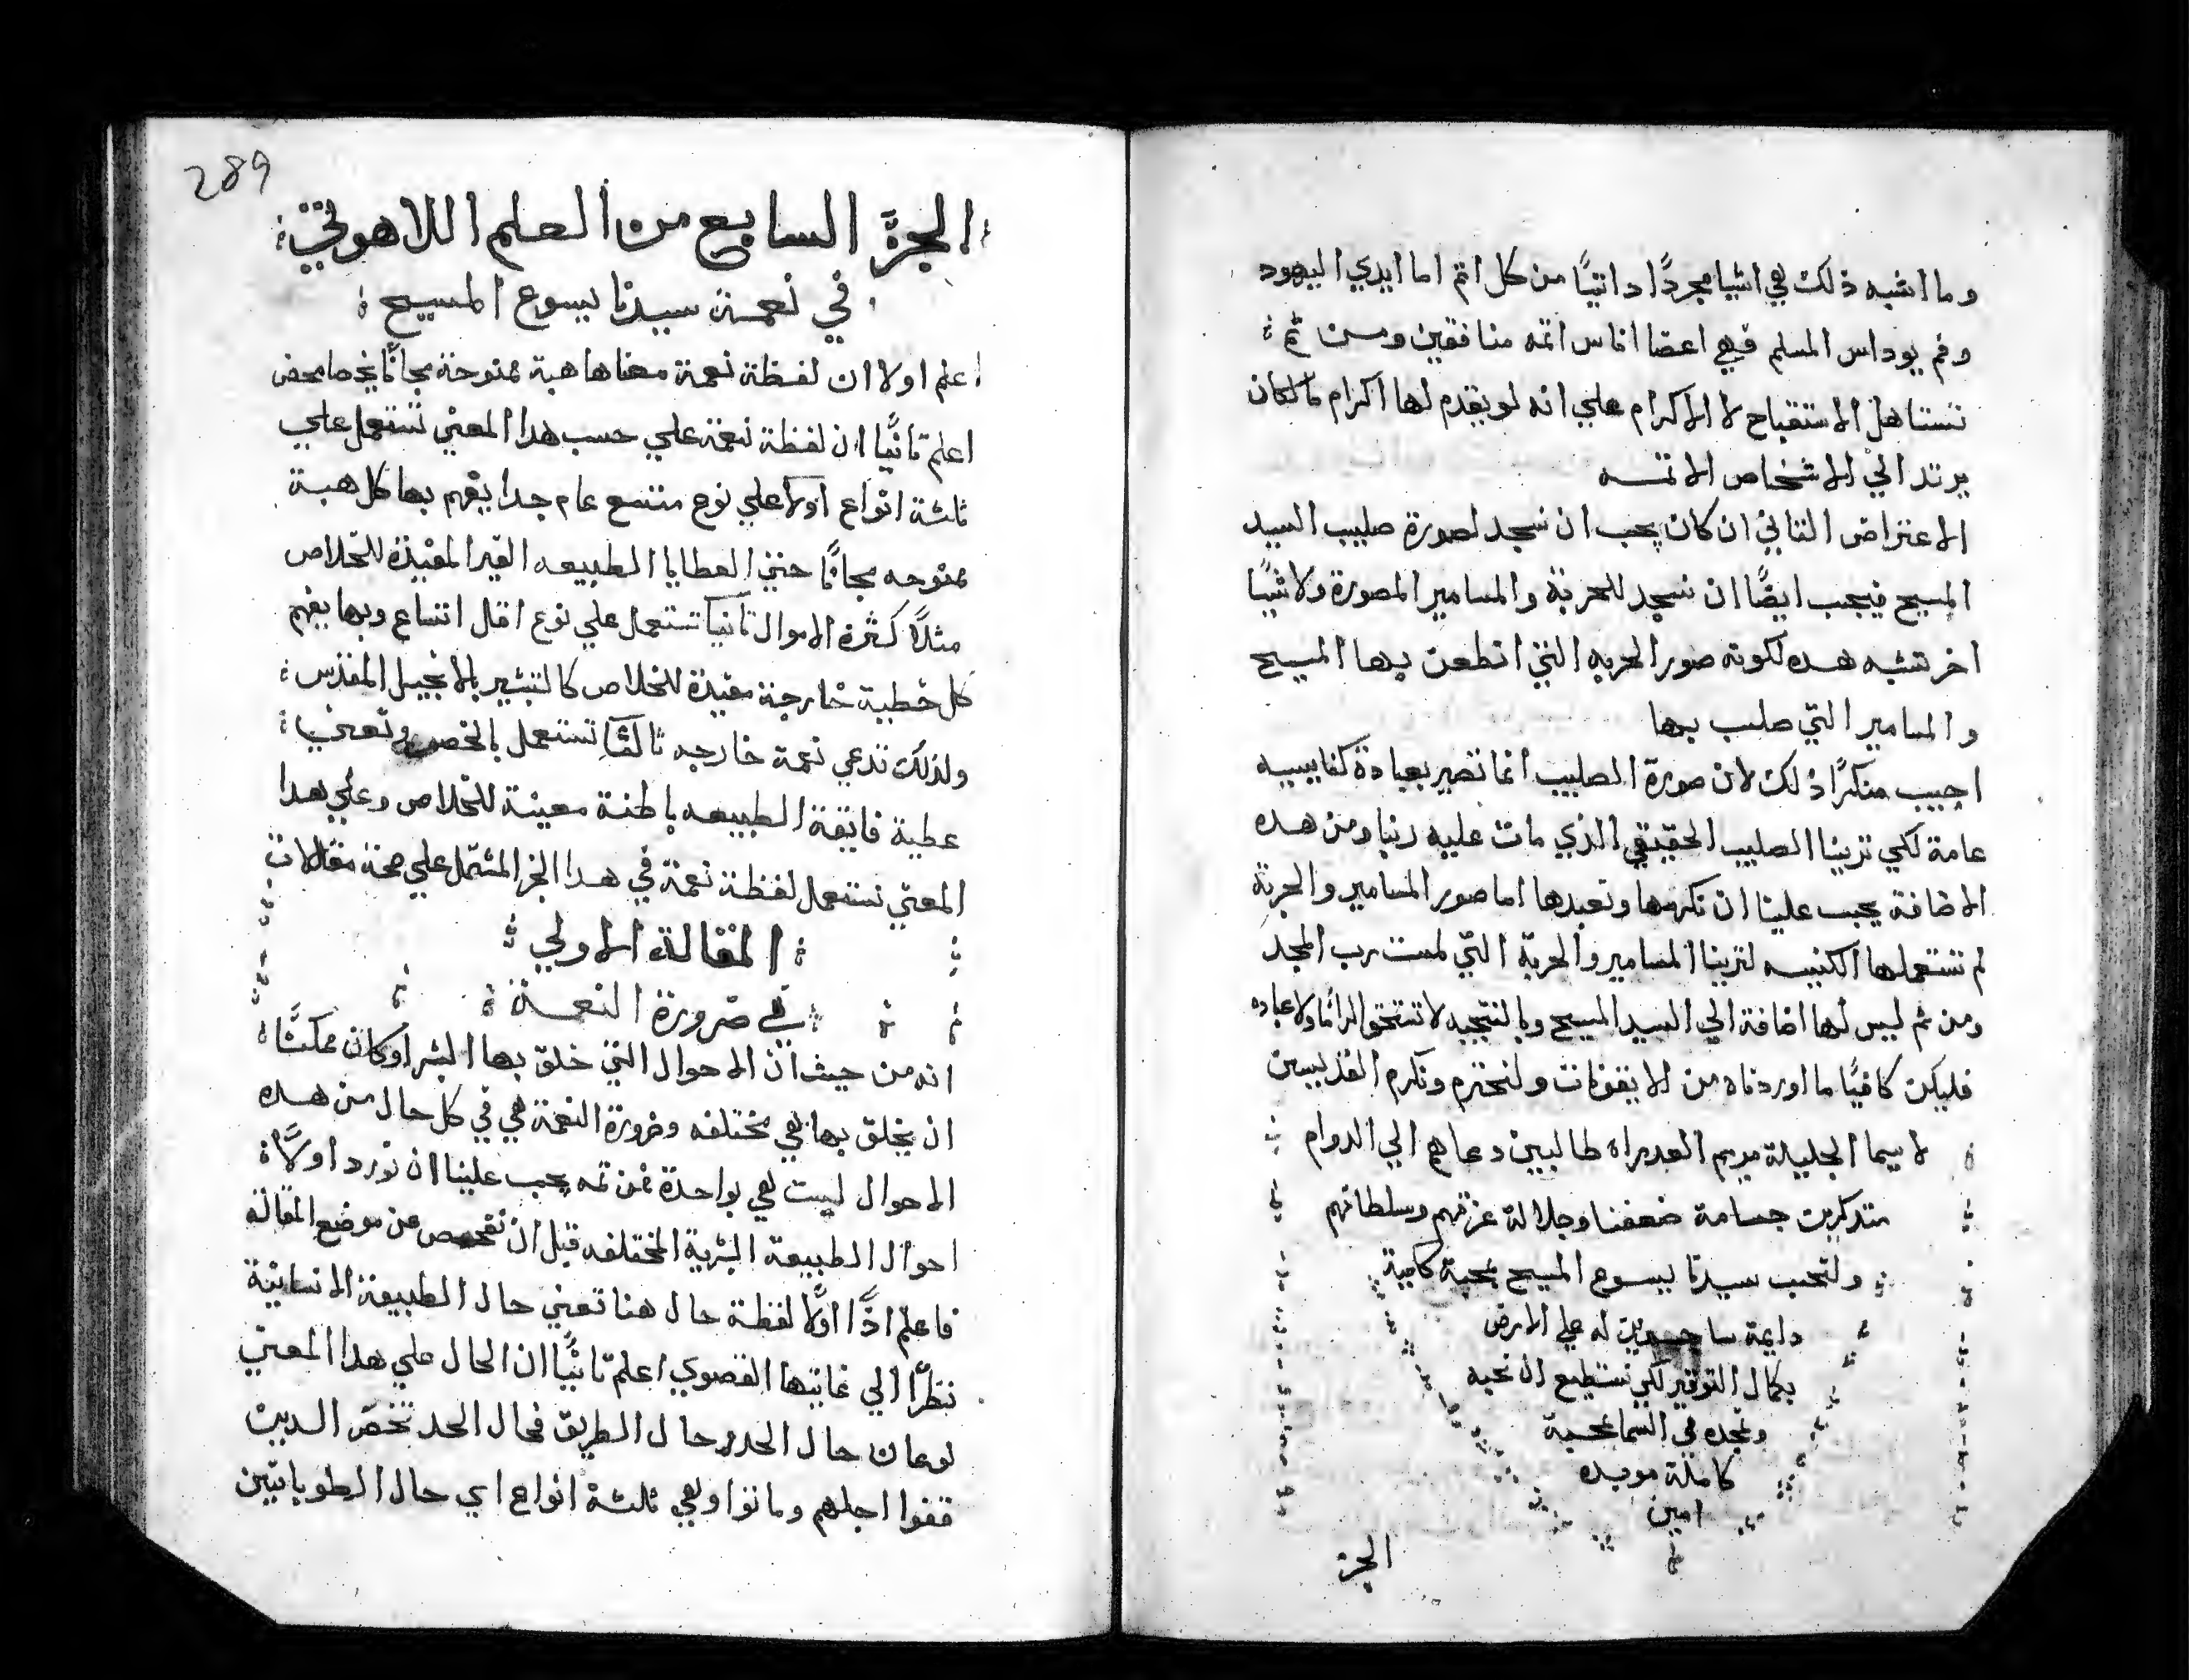 وما اشبه ذلك هي اشيا مجردًا داتيًا من كل اتم اما ايدي اليهود
وفم يوداس المسلم فهي اعضا اناس اتمه منافقين ومن تم
تستاهل الاستقباح لا الاكرام علي انه لو يقدم لها اكرام ما لكان
يرتد الي الاشخاص الاتمه
الاعتراض التاني ان كان يجب ان نسجد لصورة صليب السيد
المسيح فيجب ايضًا ان نسجد للحربة والمسامير المصورة ولا شيًا
اخر تشبه هده لكونه صور الحربه التي انطعن بها المسيح
والمسامير التي صلب بها
اجيب منكرًا ذلك لان صورة الصليب انما تصير بعبادة كنايسيه
عامة لكي ترينا الصليب الحقيقي الذي مات عليه ربنا ومن هده
الاضافة يجب علينا ان نكرمها ونعبدها اما صور المسامير والحربة
لم تستعملها الكنيسه لترينا المسامير والحربة التي لمست رب المجد
ومن ثم ليس لها اضافة الي السيد المسيح وبالنتيجه لا تستحق اكرامًا ولا عباده
فليكن كافيًا ما اوردناه من الايقونات ولنحترم ونكرم القديسين
لا سيما الجليلة مريم العدراه طالبين دعاهم الي الدوام
متدكرين جسامة ضعفنا وجلالة عزتهم وسلطانهم
ولنحب سيدنا يسوع المسيح محبة كافية
دايمة ساجدين له علي الارض
بكمال التوقير لكي نستطيع ان نحبه
ونمجده في السما بمحبة
كاملة موبده
امين
الجز
289
الجزة السابع من العلم اللاهوتي
في نعمة سيدنا يسوع المسيح
اعلم اولا ان لفظة نعمة معناها هبة ممنوحة مجانًا
اعلم تانيًا ان لفظة نعمة علي حسب هدا المعني تستعمل علي
ثلثة انواع اولًا علي نوع متسع عام جدا يفهم بها كل هبة
ممنوحه مجانًا حتي العطايا الطبيعه الغير المفيدة للخلاص
مثلًا كثرة الاموال تانيًا تستعمل علي نوع اقل اتساع وبها يفهم
كل خطية خارجة مفيدة للخلاص كالتبشير بالانجيل المقدس
ولذلك تدعي نعمة خارجه تالثًا تستعمل بالخصوص وتعني
عطية فايقة الطبيعه باطنة معينة للخلاص وعلي هدا
المعني نستعمل لفظة نعمة في هدا الجز المشتمل علي خمة مقالات
المقالة الاولي
في ضرورة النعمة
انه من حيث ان الاحوال التي خلق بها البشر او كان ممكنًا
ان يخلق بها هي مختلفه وضرورة النعمة هي في كل حال من هده
الاحوال ليست هي بواحدة فمن تمه يجب علينا ان نورد اولًا
احوال الطبيعة البشرية المختلفه قبل ان نفحص عن موضع المقالة
فاعلم اذًا اولًا لفظة حال هنا تعني حال الطبيعة الانسانية
نظرًا الي غايتها القصوي اعلم تانيًا ان الحال علي هدا المعني
نوعان حال الحد وحال الطريق فحال الحد تخص الدين
قفوا اجلهم وماتوا وهي ثلثة انواع اي حال الطوبانيين